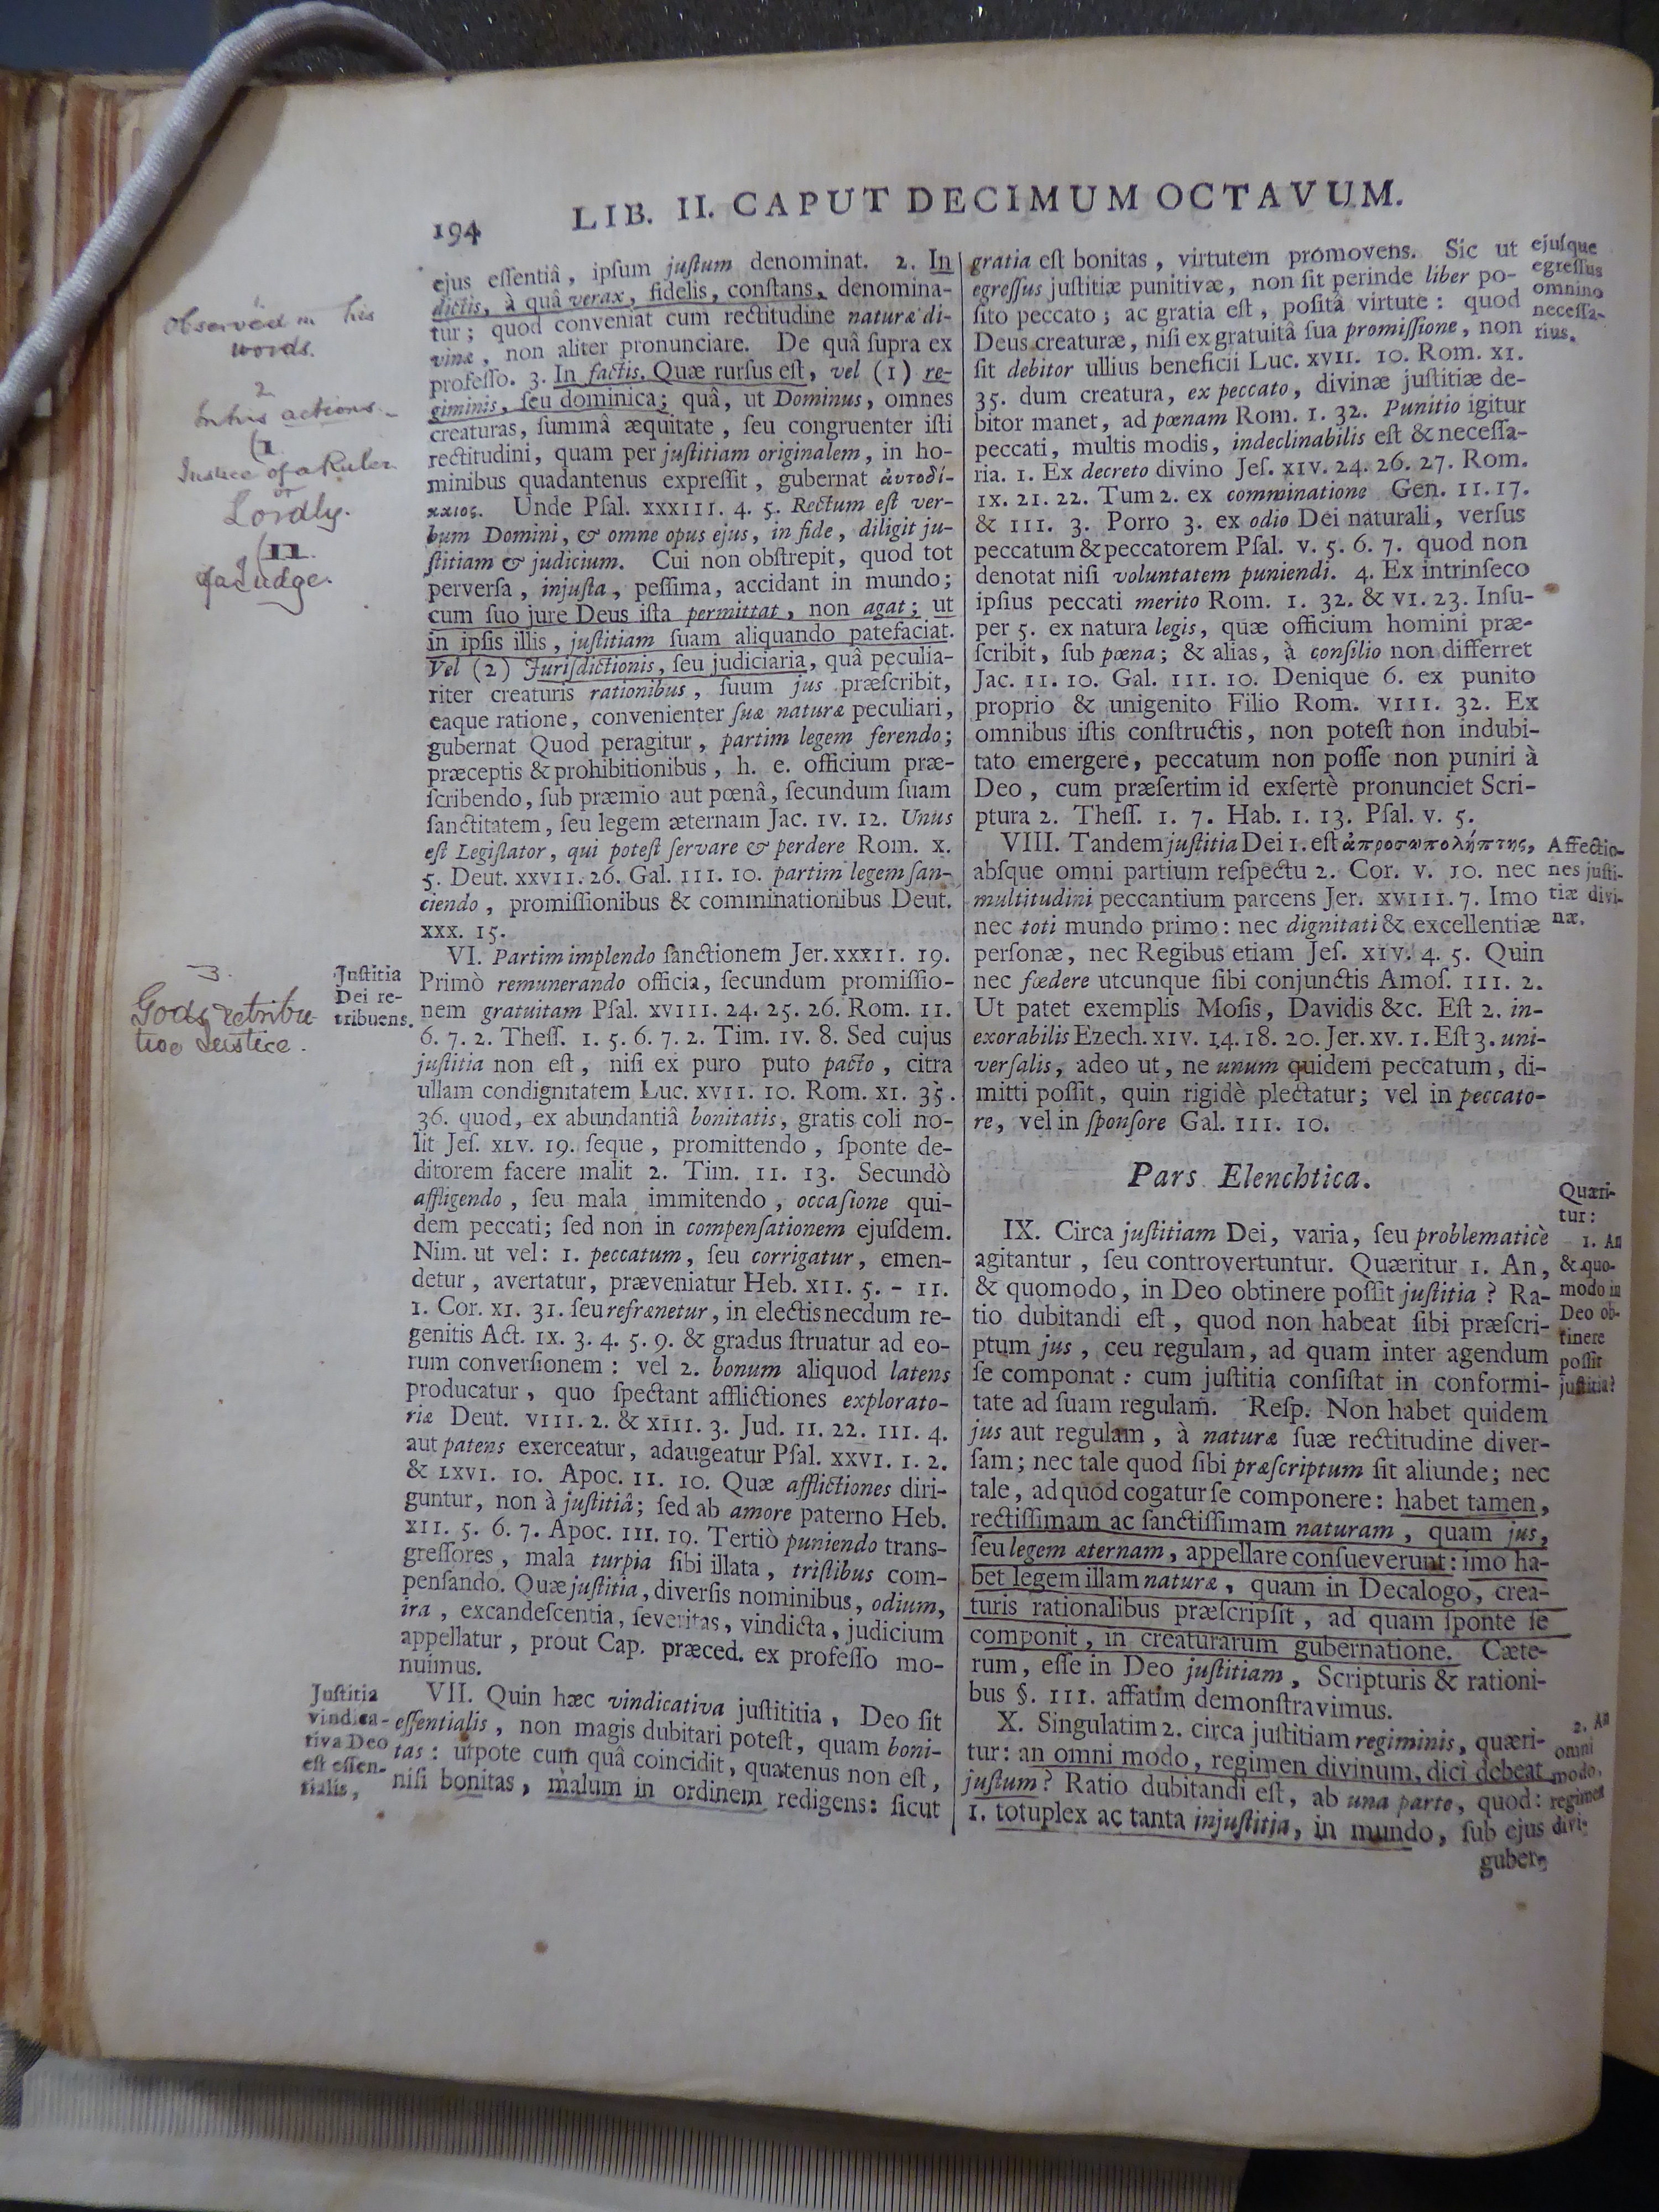 194
LIB. II. CAPUT DECIMUM OCTAVUM.
ejus eſſentiâ, ipſum juſtum denominat. 2. In
dictis, à quâ verax, fidelis, conſtans, denomina-
tur; quod conveniat cum rectitudine naturæ di-
vinæ, non aliter pronunciare. De quâ ſupra ex
profeſſo. 3. In factis. Quæ rurſus eſt, vel (1) re-
giminis, ſeu dominica; quâ, ut Dominus, omnes
creaturas, ſummâ æquitate, ſeu congruenter iſti
rectitudini, quam per juſtitiam originalem, in ho-
minibus quadantenus expreſſit, gubernat ἀυτοδί-
καιος. Unde Pſal. XXXIII. 4. 5. Rectum eſt ver-
bum Domini, & omne opus ejus, in fide, diligit ju-
ſtitiam & judicium. Cui non obſtrepit, quod tot
perverſa, injuſta, peſſima, accidant in mundo;
cum ſuo jure Deus iſta permittat, non agat; ut
in ipſis illis, juſtitiam ſuam aliquando patefaciat.
Vel (2) Juriſdictionis, ſeu judiciaria, quâ peculia-
riter creaturis rationibus, ſuum jus præſcribit,
eaque ratione, convenienter ſuæ naturæ peculiari,
gubernat Quod peragitur, partim legem ferendo;
præceptis & prohibitionibus, h. e. officium præ-
ſcribendo, ſub præmio aut pœnâ, ſecundum ſuam
ſanctitatem, ſeu legem æternam Jac. IV. 12. Unus
eſt Legiſlator, qui poteſt ſervare & perdere Rom. X.
5. Deut. XXVII. 26. Gal. III. 10. partim legem ſan-
ciendo, promiſſionibus & comminationibus Deut.
XXX. 15.
VI. Partim implendo ſanctionem Jer. XXXII. 19.
Primò remunerando officia, ſecundum promiſſio-
nem gratuitam Pſal. XVIII. 24. 25. 26. Rom. II.
6. 7. 2. Theſſ. 1. 5. 6. 7. 2. Tim. IV. 8. Sed cujus
juſtitia non eſt, niſi ex puro puto pacto, citra
ullam condignitatem Luc. XVII. 10. Rom. XI. 35.
36. quod, ex abundantiâ bonitatis, gratis coli no-
lit Jeſ. XLV. 19. ſeque, promittendo, ſponte de-
ditorem facere malit 2. Tim. II. 13. Secundò
affligendo, ſeu mala immitendo, occaſione qui-
dem peccati; ſed non in compenſationem ejuſdem.
Nim. ut vel: 1. peccatum, ſeu corrigatur, emen-
detur, avertatur, præveniatur Heb. XII. 5. - 11.
1. Cor. XI. 31. ſeu refrænetur, in electis necdum re-
genitis Act. IX. 3. 4. 5. 9. & gradus ſtruatur ad eo-
rum converſionem: vel 2. bonum aliquod latens
producatur, quo ſpectant afflictiones explorato-
riæ Deut. VIII. 2. & XIII. 3. Jud. II. 22. III. 4.
aut patens exerceatur, adaugeatur Pſal. XXVI. 1. 2.
& LXVI. 10. Apoc. II. 10. Quæ afflictiones diri-
guntur, non à juſtitiâ; ſed ab amore paterno Heb.
XII. 5. 6. 7. Apoc. III. 19. Tertiò puniendo trans-
greſſores, mala turpia ſibi illata, triſtibus com-
penſando. Quæ juſtitia, diverſis nominibus, odium,
ira, excandeſcentia, ſeveritas, vindicta, judicium
appellatur, prout Cap. præced. ex profeſſo mo-
nuimus.
VII. Quin hæc vindicativa juſtititia, Deo ſit
eſſentialis, non magis dubitari poteſt, quam boni-
tas: utpote cum quâ coincidit, quatenus non eſt,
niſi bonitas, malum in ordinem redigens: ſicut
1
observed in his
words.
2
In his actions.
(1
Justice of a Ruler
or
Lordly.
(11.
of a Judge.
3.
Gods retribu-
tive Justice.
Juſtitia
Dei re-
tribuens.
Juſtitia
vindica-
tiva Deo
eſt eſſen-
tialis,
gratia eſt bonitas, virtutem promovens. Sic ut
egreſſus juſtitiæ punitivæ, non ſit perinde liber po-
ſito peccato; ac gratia eſt, poſitâ virtute: quod
Deus creaturæ, niſi ex gratuitâ ſua promiſſione, non
ſit debitor ullius beneficii Luc. XVII. 10. Rom. XI.
35. dum creatura, ex peccato, divinæ juſtitiæ de-
bitor manet, ad pœnam Rom. 1. 32. Punitio igitur
peccati, multis modis, indeclinabilis eſt & neceſſa-
ria. 1. Ex decreto divino Jeſ. XIV. 24. 26. 27. Rom.
IX. 21. 22. Tum 2. ex comminatione Gen. II. 17.
& III. 3. Porro 3. ex odio Dei naturali, verſus
peccatum & peccatorem Pſal. V. 5. 6. 7. quod non
denotat niſi voluntatem puniendi. 4. Ex intrinſeco
ipſius peccati merito Rom. 1. 32. & VI. 23. Inſu-
per 5. ex natura legis, quæ officium homini præ-
ſcribit, ſub pœna; & alias, à conſilio non differret
Jac. II. 10. Gal. III. 10. Denique 6. ex punito
proprio & unigenito Filio Rom. VIII. 32. Ex
omnibus iſtis conſtructis, non poteſt non indubi-
tato emergere, peccatum non poſſe non puniri à
Deo, cum præſertim id exſertè pronunciet Scri-
ptura 2. Theſſ. 1. 7. Hab. 1. 13. Pſal. V. 5.
VIII. Tandem juſtitia Dei 1. eſt ἀπροσωπολήπτης,
abſque omni partium reſpectu 2. Cor. V. 10. nec
multitudini peccantium parcens Jer. XVIII. 7. Imo
nec toti mundo primo: nec dignitati & excellentiæ
perſonæ, nec Regibus etiam Jeſ. XIV. 4. 5. Quin
nec fœdere utcunque ſibi conjunctis Amoſ. III. 2.
Ut patet exemplis Moſis, Davidis &c. Eſt 2. in-
exorabilis Ezech. XIV. 14. 18. 20. Jer. XV. 1. Eſt 3. uni-
verſalis, adeo ut, ne unum quidem peccatum, di-
mitti poſſit, quin rigidè plectatur; vel in peccato-
re, vel in ſponſore Gal. III. 10.
Pars Elenchtica.
IX. Circa juſtitiam Dei, varia, ſeu problematicè
agitantur, ſeu controvertuntur. Quæritur 1. An,
& quomodo, in Deo obtinere poſſit juſtitia? Ra-
tio dubitandi eſt, quod non habeat ſibi præſcri-
ptum jus, ceu regulam, ad quam inter agendum
ſe componat: cum juſtitia conſiſtat in conformi-
tate ad ſuam regulam. Reſp. Non habet quidem
jus aut regulam, à naturæ ſuæ rectitudine diver-
ſam; nec tale quod ſibi præſcriptum ſit aliunde; nec
tale, ad quod cogatur ſe componere: habet tamen,
rectiſſimam ac ſanctiſſimam naturam, quam jus,
ſeu legem æternam, appellare conſueverunt: imo ha-
bet legem illam naturæ, quam in Decalogo, crea-
turis rationalibus præſcripſit, ad quam ſponte ſe
componit, in creaturarum gubernatione. Cæte-
rum, eſſe in Deo juſtitiam, Scripturis & rationi-
bus §. III. affatim demonſtravimus.
X. Singulatim 2. circa juſtitiam regiminis, quæri-
tur: an omni modo, regimen divinum, dici debeat
juſtum? Ratio dubitandi eſt, ab una parte, quod:
1. totuplex ac tanta injuſtitia, in mundo, ſub ejus
guber-
ejuſque
egreſſus
omnino
neceſſa-
rius.
Affectio-
nes juſti-
tiæ divi-
næ.
Quæri-
tur:
1. An
& quo-
modo in
Deo ob-
tinere
poſſit
juſtitia?
2. An
omni
modo,
regimen
divi-